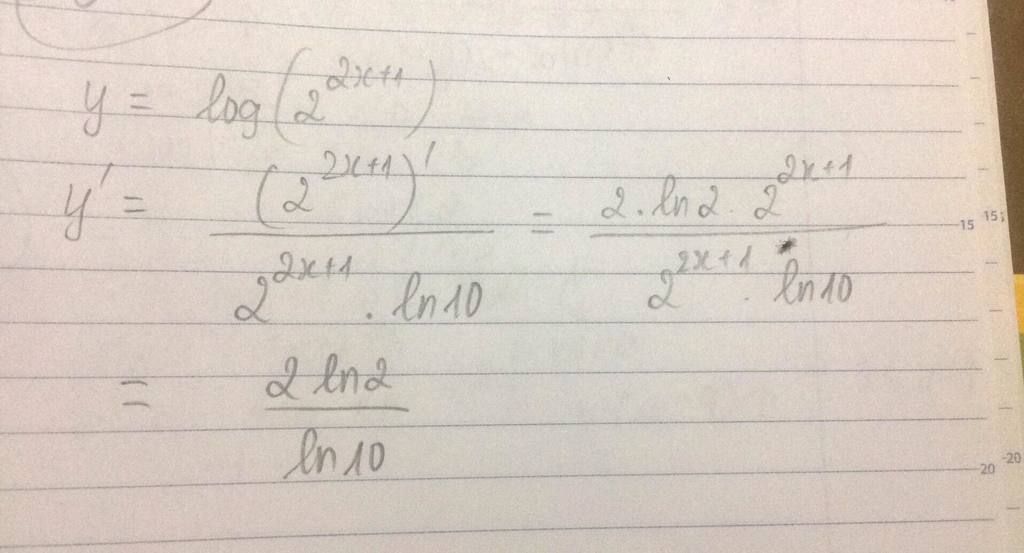 y = log(2^{2x+1})
y' = \frac{(2^{2x+1})'}{2^{2x+1} . ln10} = \frac{2 . ln2 . 2^{2x+1}}{2^{2x+1} . ln10}
= \frac{2 ln2}{ln10}
15 15;
20 -20